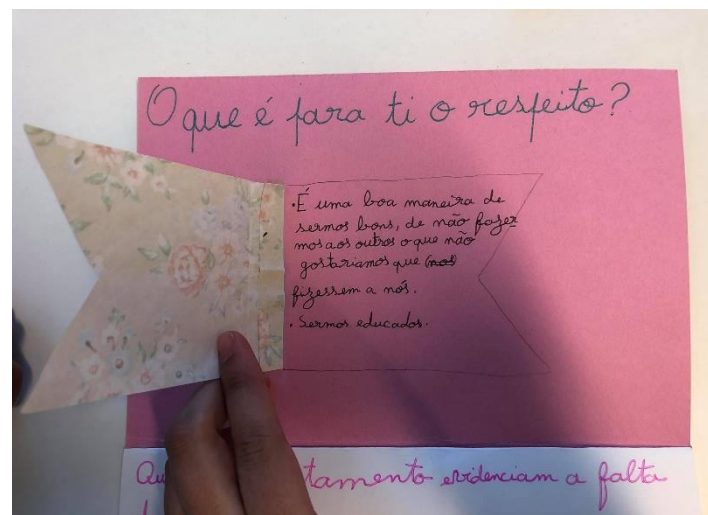 O que é para ti o respeito?
• É uma boa maneira de
sermos bons, de não fazer
mos aos outros o que não
gostariamos que (nos)
fizessem a nós.
• Sermos educados.
Qu tamento evidenciam a falta